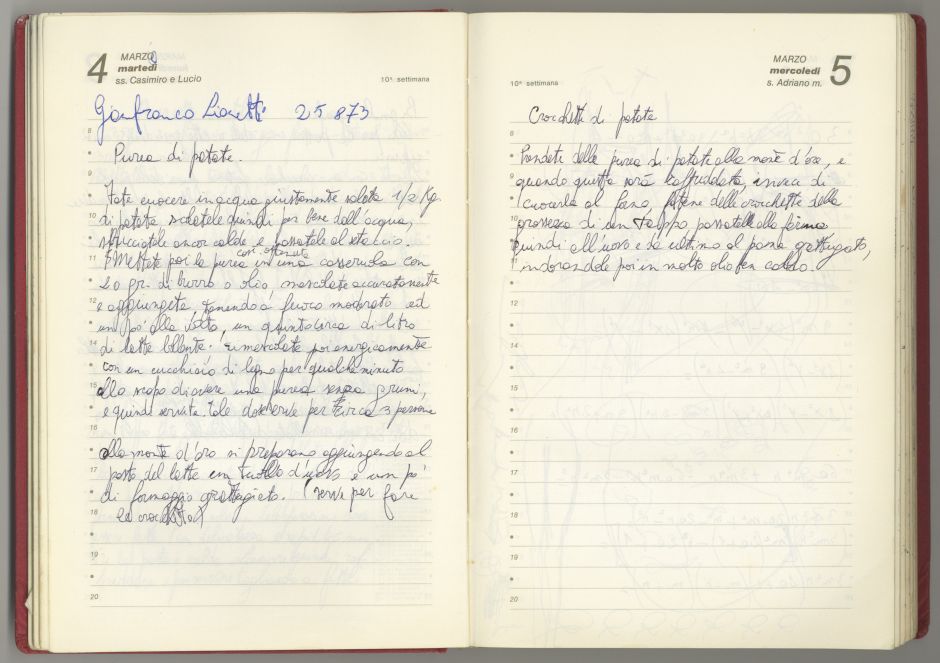 4 MARZO
martedì
ss. Casimiro e Lucio
10ª settimana
Gianfranco 25873
8
Purea di patate.
9
Fate cuocere in acqua giustamente salata 1/2 Kg.
10
di patate scolatele quindi per bene dall'acqua,
sbucciatele ancor calde, e passatele al staccio.
11
Mettete poi la purea così ottenuta in una casseruola con
20 gr. di burro o olio, mescolate accuratamente
12
e aggiungete, tenendo a fuoco moderato ed
13
un po' alla volta, un quinto circa di litro
14
di latte bollente. mescolate poi energicamente
con un cucchiaio di legno per qualche minuto
15
allo scopo di avere una purea senza grumi,
e quindi servite. Tale dose serve per circa 3 persone
16
alla monte d'oro si preparano aggiungendo al
17
posto del latte un tuorlo d'uovo e un po'
di formaggio grattugiato. (serve per fare
18
le
19
20
MARZO 5
mercoledì
s. Adriano m.
10ª settimana
Crocchette di patate
8
Prendete della purea di patate alla monte d'oro, e
9
quando questa sarà raffreddata, invece di
cuocerla al forno, fatene delle crocchette della
10
grossezza di un tappo passatele alla farina
11
quindi all'uovo e da ultimo al pane grattugiato,
indorandole poi in molto olio ben caldo.
12
13
14
15
16
17
18
19
20